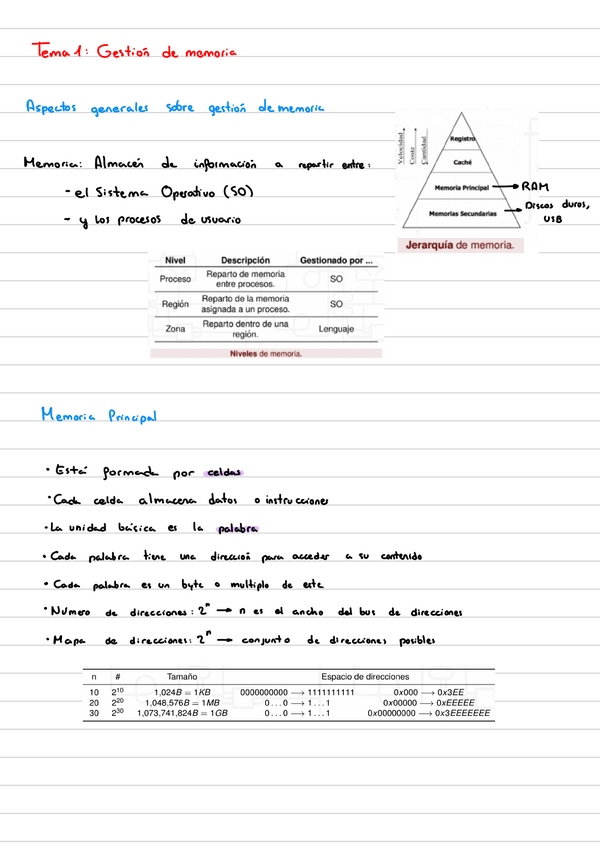 Tema 1: Gestión de memoria
Aspectos generales sobre gestión de memoria
Memoria: Almacén de información a repartir entre:
- el Sistema Operativo (SO)
- y los procesos de usuario
Velocidad
Coste
Cantidad
Registro
Caché
Memoria Principal → RAM
Memorias Secundarias → Discos duros,
USB
Jerarquía de memoria.
Nivel Descripción Gestionado por ...
Proceso Reparto de memoria entre procesos. SO
Región Reparto de la memoria asignada a un proceso. SO
Zona Reparto dentro de una región. Lenguaje
Niveles de memoria.
Memoria Principal
· Está formada por celdas
· Cada celda almacena datos o instrucciones
· La unidad básica es la palabra
· Cada palabra tiene una dirección para acceder a su contenido
· Cada palabra es un byte o multiplo de este
· Número de direcciones: 2^n → n es el ancho del bus de direcciones
· Mapa de direcciones: 2^n → conjunto de direcciones posibles
n # Tamaño Espacio de direcciones
10 2^10 1,024B = 1KB 0000000000 → 1111111111 0x000 → 0x3EE
20 2^20 1,048,576B = 1MB 0...0 → 1...1 0x00000 → 0xEEEEE
30 2^30 1,073,741,824B = 1GB 0...0 → 1...1 0x00000000 → 0x3EEEEEEE